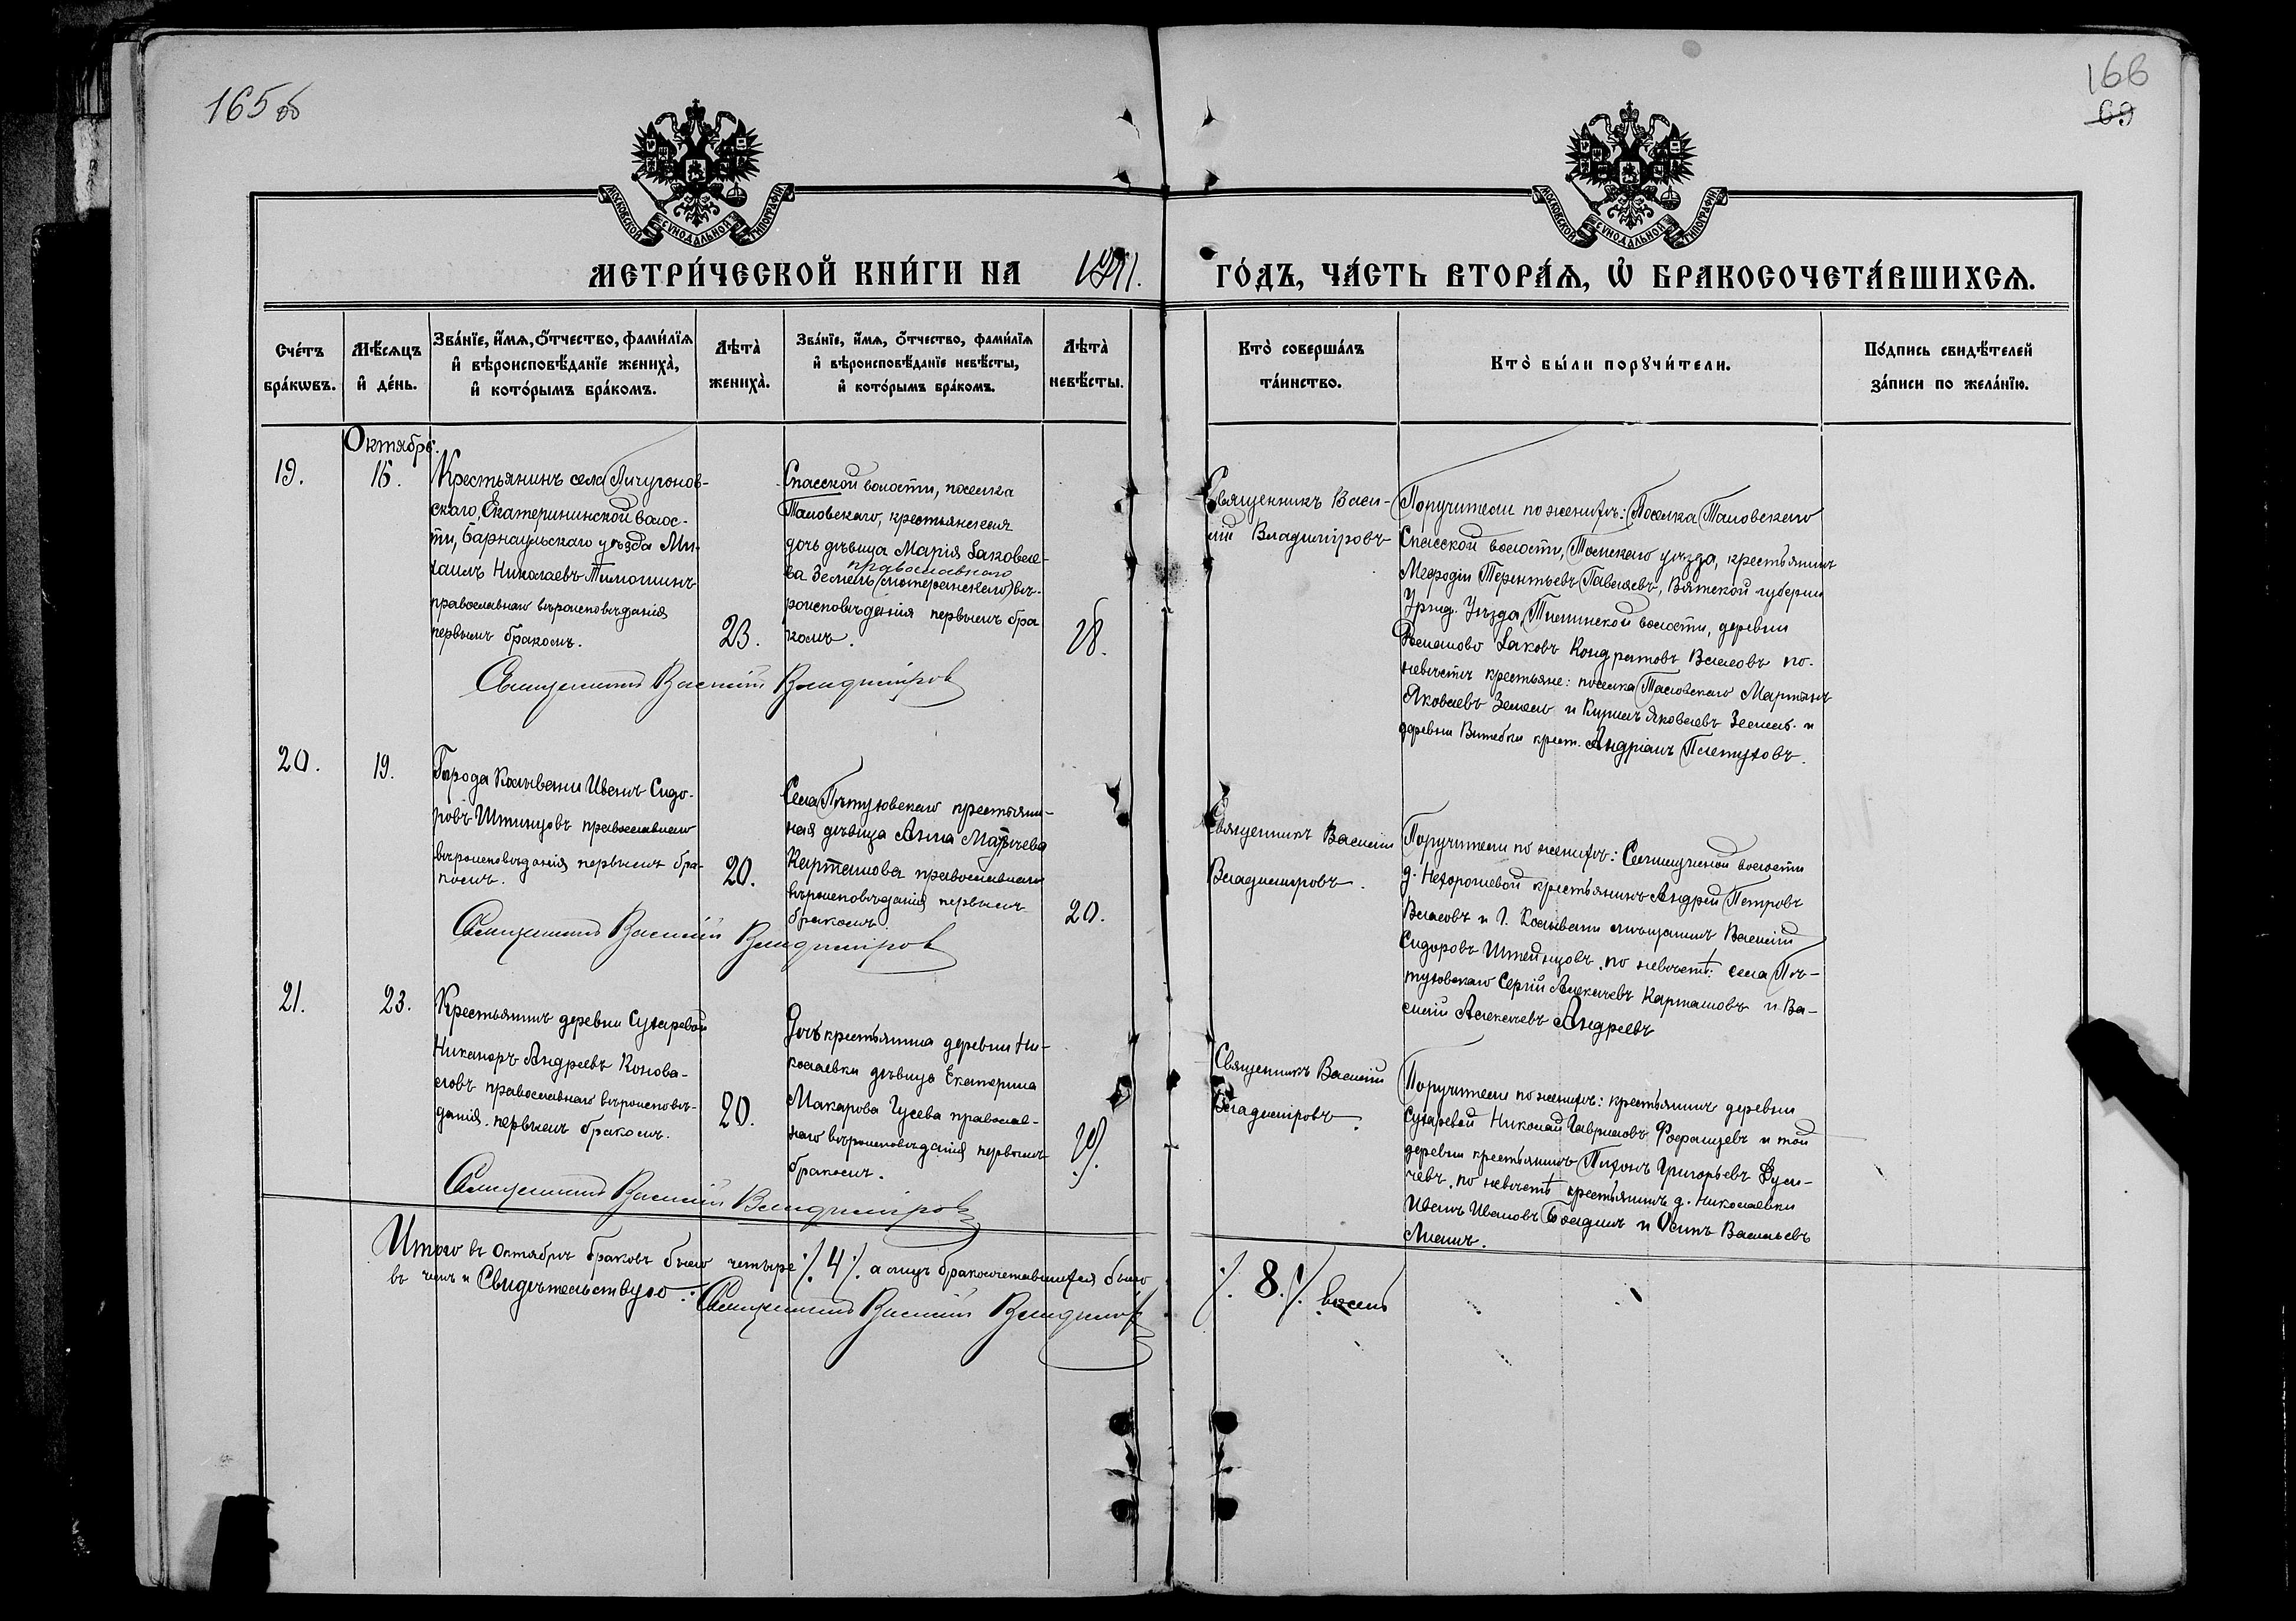 165 об
166
69
МОСКОВСКОЙ СѴНОДАЛЬНОЙ ТИПОГРАФІИ
МОСКОВСКОЙ СѴНОДАЛЬНОЙ ТИПОГРАФІИ
МЕТРИ́ЧЕСКОЙ КНИ́ГИ НА 1911.
ГО́ДЪ, ЧА́СТЬ ВТОРА́Ѧ, Ѽ БРАКОСОЧЕТА́ВШИХСѦ.
Сче́тъ
бра́кωвъ.
Мѣ́сяцъ
и҆ де́нь.
Зва́нїе, и҆́мѧ, ѻ҆́тчество, фами́лїѧ
и҆ вѣроисповѣ́данїе жениха̀,
и҆ кото́рымъ бра́комъ.
Лѣта̀
жениха̀.
Зва́нїе, и҆́мѧ, ѻ҆́тчество, фами́лїѧ
и҆ вѣроисповѣ́данїе невѣ́сты,
и҆ кото́рымъ бра́комъ.
Лѣта̀
невѣ́сты.
Кто̀ соверша́лъ
та́инство.
Кто̀ бы́ли порꙋчи́тели.
По́дпись свидѣ́телей
за́писи по жела́нїю.
Октябрь.
19.
16.
Крестьянинъ села Пичугонов-
скаго, Екатерининской волос-
ти, Барнаульскаго уѣзда Ми-
хаилъ Николаевъ Тимошинъ
православнаго вѣроисповѣданія
первымъ бракомъ.
23.
Спасской волости, поселка
Таловскаго, крестьянская
дочь дѣвица Марія Іаковле-
православнаго
ва Земель (лютеранскаго) вѣ-
роисповѣданія первымъ бра
комъ.
18.
Священникъ Василій Владиміровъ
Священникъ Васи-
лій Владиміровъ
Поручители по женихѣ: Поселка Таловскаго
Спасской волости, Томскаго уѣзда, крестьянинъ
Мефодій Терентьевъ Павляевъ, Вятской губерніи
Уржд. Уѣзда, волости, деревни
Іаковъ Кондратовъ Власовъ по-
невѣстѣ крестьяне: поселка Таловскаго Мартынъ
Яковлевъ Земель и Яковлевъ Земель и
деревни Витебки крест. Андріанъ Плетуховъ.
20.
19.
Города Колывани Иванъ Сидо-
ровъ Штинцовъ православнаго
вѣроисповѣданія первымъ бра-
комъ.
20.
Села Пѣтуховскаго крестьян-
ская дѣвица Анна
Карташова православнаго
вѣроисповѣданія первымъ
бракомъ.
20.
Священникъ Василій Владиміровъ
Священникъ Василій
Владиміровъ.
Поручители по женихѣ: волости
д. Нехорошевой крестьянинъ Андрей Петровъ
Власовъ и г. Колывани мѣщанинъ Василій
Сидоровъ Штейнцовъ. по невѣстѣ: села Пѣ-
туховскаго Сергій Алексѣевъ Карташовъ и Ва-
силій Алексѣевъ Андреевъ
21.
23.
Крестьянинъ деревни Сухаревой
Никаноръ Андреевъ Конова-
ловъ православнаго вѣроисповѣ-
данія. первымъ бракомъ.
20.
Дочь крестьянина деревни Ни-
колаевки дѣвица Екатерина
Макарова Гусева православ-
наго вѣроисповѣданія первымъ
бракомъ.
19.
Священникъ Василій Владиміровъ
Священникъ Василій
Владиміровъ.
Поручители по женихѣ: крестьянинъ деревни
Сухаревой Николай Гавриловъ и той
деревни крестьянинъ Григорьевъ
по невѣстѣ крестьянинъ д. Николаевки
Иванъ Ивановъ и Осипъ Васильевъ
Итого въ Октябрѣ браковъ было четыре ·/. 4 ·/. а лицъ бракосочетавшихся было ·/. 8 ·/. восемь
въ чемъ и Свидѣтельствую: Священникъ Василій Владиміровъ